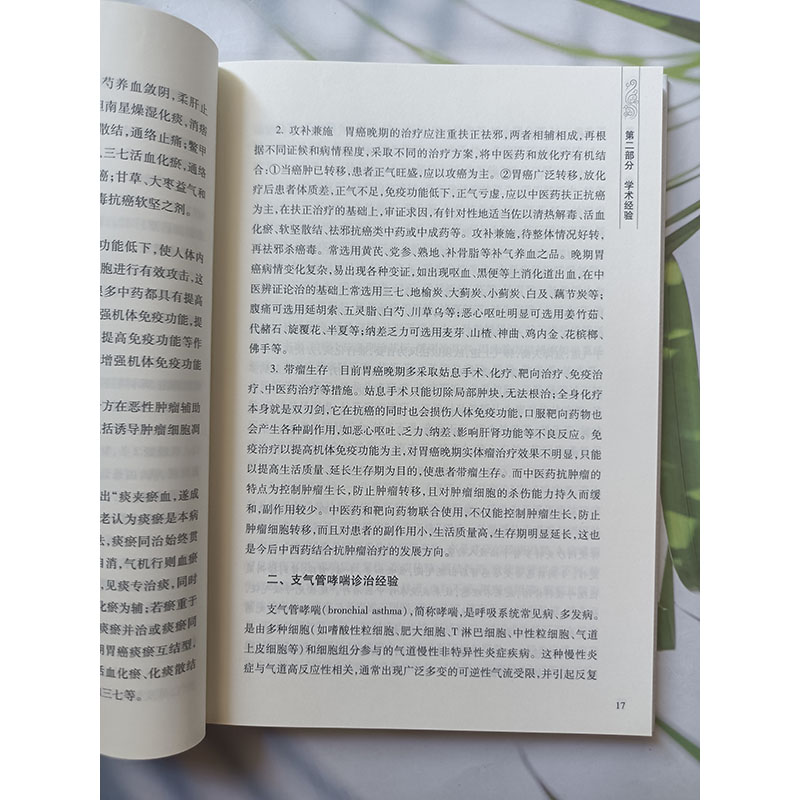 芍养血敛阴,柔肝止
胆南星燥湿化痰,消痞
散结,通络止痛;鳖甲
,三七活血化瘀,通络
癌;甘草、大枣益气和
毒抗癌软坚之剂。
功能低下,使人体内
胞进行有效攻击,这
很多中药都具有提高
增强机体免疫功能,提
提高免疫功能等作
增强机体免疫功能
方在恶性肿瘤辅助
括诱导肿瘤细胞凋
出“痰夹瘀血,遂成
老认为痰瘀是本病
法,痰瘀同治始终贯
自消,气机行则血瘀
,见痰专治痰,同时
化瘀为辅;若瘀重于
痰瘀并治或痰瘀同
期胃癌痰瘀互结型,
活血化瘀、化痰散结
三七等。
第二部分 学术经验
2. 攻补兼施 胃癌晚期的治疗应注重扶正祛邪,两者相辅相成,再根
据不同证候和病情程度,采取不同的治疗方案,将中医药和放化疗有机结
合:①当癌肿已转移,患者正气旺盛,应以攻癌为主。②胃癌广泛转移,放化
疗后患者体质差,正气不足,免疫功能低下,正气亏虚,应以中医药扶正抗癌
为主,在扶正治疗的基础上,审证求因,有针对性地适当佐以清热解毒、活血
化瘀、软坚散结、祛邪抗癌类中药或中成药等。攻补兼施,待整体情况好转,
再祛邪杀癌毒。常选用黄芪、党参、熟地、补骨脂等补气养血之品。晚期胃
癌病情变化复杂,易出现各种变证,如出现呕血、黑便等上消化道出血,在中
医辨证论治的基础上常选用三七、地榆炭、大蓟炭、小蓟炭、白及、藕节炭等;
腹痛可选用延胡索、五灵脂、白芍、川草乌等;恶心呕吐明显可选用姜竹茹、
代赭石、旋覆花、半夏等;纳差乏力可选用麦芽、山楂、神曲、鸡内金、花槟榔、
佛手等。
3. 带瘤生存 目前胃癌晚期多采取姑息手术、化疗、靶向治疗、免疫治
疗、中医药治疗等措施。姑息手术只能切除局部肿块,无法根治;全身化疗
本身就是双刃剑,它在抗癌的同时也会损伤人体免疫功能,口服靶向药物也
会产生各种副作用,如恶心呕吐、乏力、纳差、影响肝肾功能等不良反应。免
疫治疗以提高机体免疫功能为主,对胃癌晚期实体瘤治疗效果不明显,只能
以提高生活质量、延长生存期为目的,使患者带瘤生存。而中医药抗肿瘤的
特点为控制肿瘤生长,防止肿瘤转移,且对肿瘤细胞的杀伤能力持久而缓
和,副作用较少。中医药和靶向药物联合使用,不仅能控制肿瘤生长,防止
肿瘤细胞转移,而且对患者的副作用小,生活质量高,生存期明显延长,这也
是今后中西药结合抗肿瘤治疗的发展方向。
二、支气管哮喘诊治经验
支气管哮喘(bronchial asthma),简称哮喘,是呼吸系统常见病、多发病。
是由多种细胞(如嗜酸性粒细胞、肥大细胞、T淋巴细胞、中性粒细胞、气道
上皮细胞等)和细胞组分参与的气道慢性非特异性炎症疾病。这种慢性炎
症与气道高反应性相关,通常出现广泛多变的可逆性气流受限,并引起反复
17